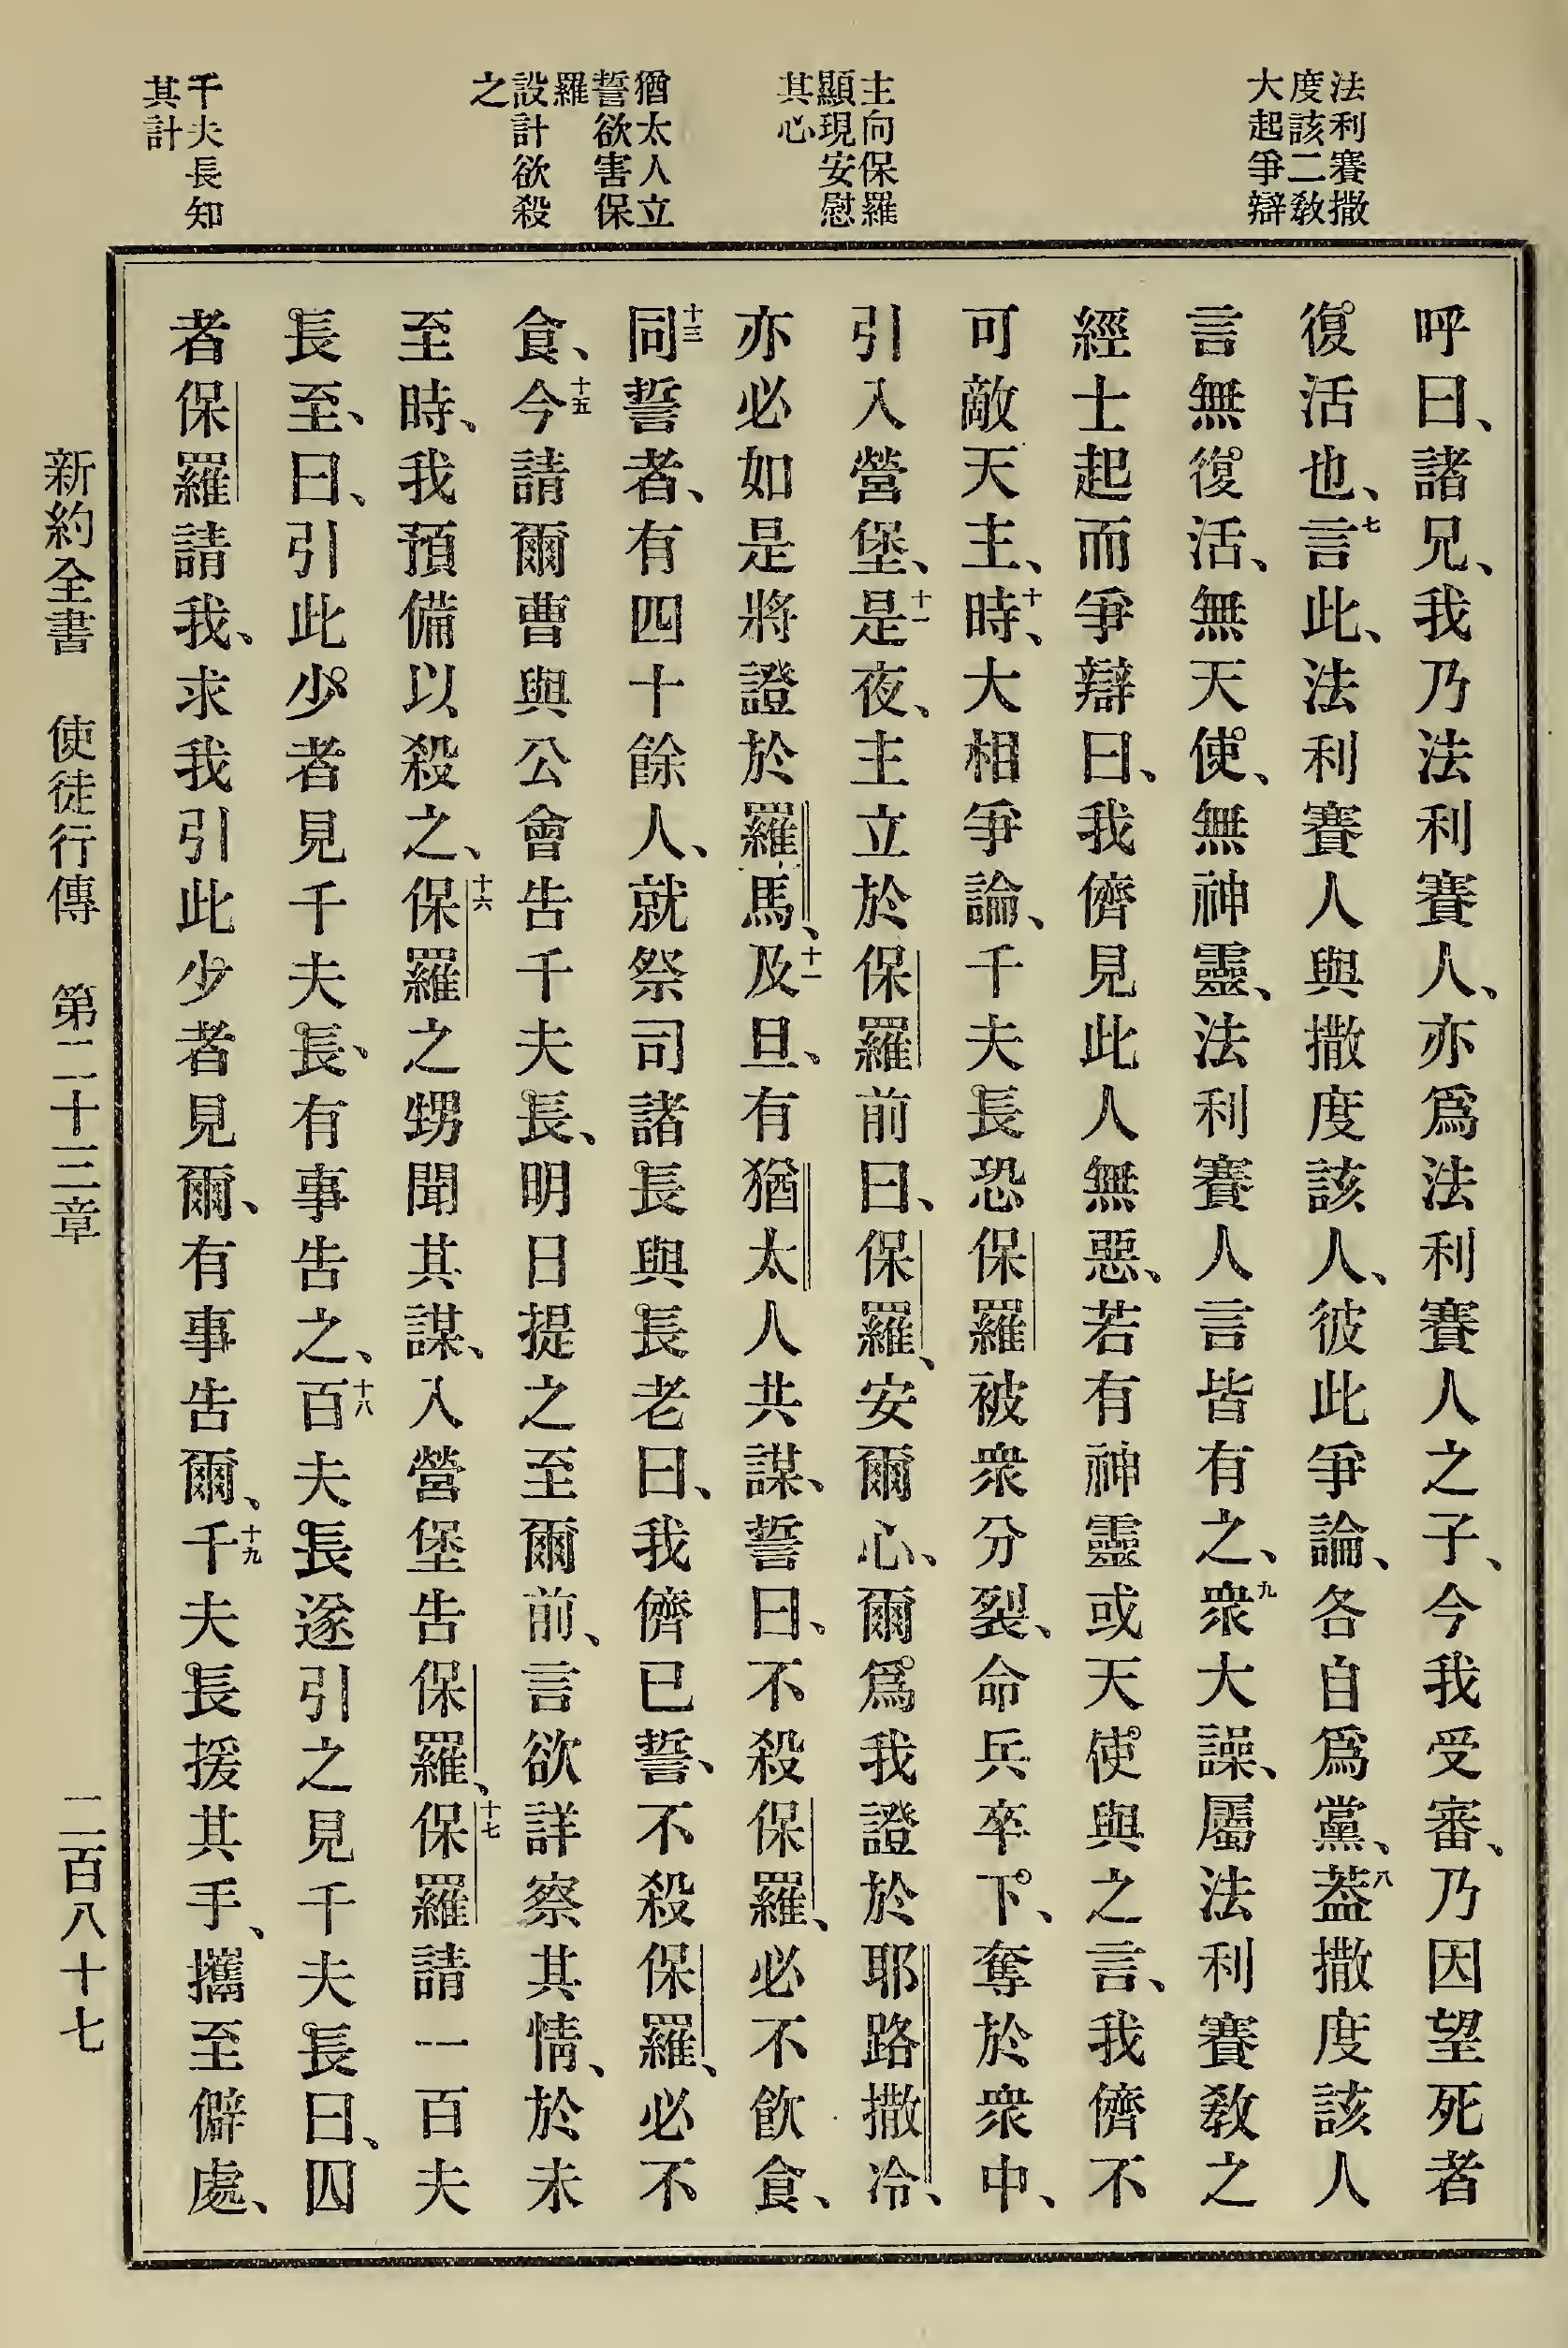 法利賽撒
度該二敎
大起爭辯
主向保羅
顯現安慰
其心
猶太人立
誓欲害保
羅
設計欲殺
之
千夫長知
其計
呼曰、諸兄、我乃法利賽人、亦爲法利賽人之子、今我受審、乃因望死者
復活也、七言此、法利賽人與撒度該人、彼此爭論、各自爲黨、八葢撒度該人
言無復活、無天使、無神靈、法利賽人言皆有之、九衆大譟、屬法利賽敎之
經士起而爭辯曰、我儕見此人無惡、若有神靈或天使與之言、我儕不
可敵天主、十時、大相爭論、千夫長恐保羅被衆分裂、命兵卒下、奪於衆中、
引入營堡、十一是夜、主立於保羅前曰、保羅、安爾心、爾爲我證於耶路撒冷、
亦必如是將證於羅馬、十二及旦、有猶太人共謀、誓曰、不殺保羅、必不飮食、
十三同誓者、有四十餘人、就祭司諸長與長老曰、我儕已誓、不殺保羅、必不
食、十五今請爾曹與公會告千夫長、明日提之至爾前、言欲詳察其情、於未
至時、我預備以殺之、十六保羅之甥聞其謀、入營堡告保羅、十七保羅請一百夫
長至、曰、引此少者見千夫長、有事告之、十八百夫長遂引之見千夫長曰、囚
者保羅請我、求我引此少者見爾、有事告爾、十九千夫長援其手、攜至僻處、
新約全書 使徒行傳 第二十三章 二百八十七